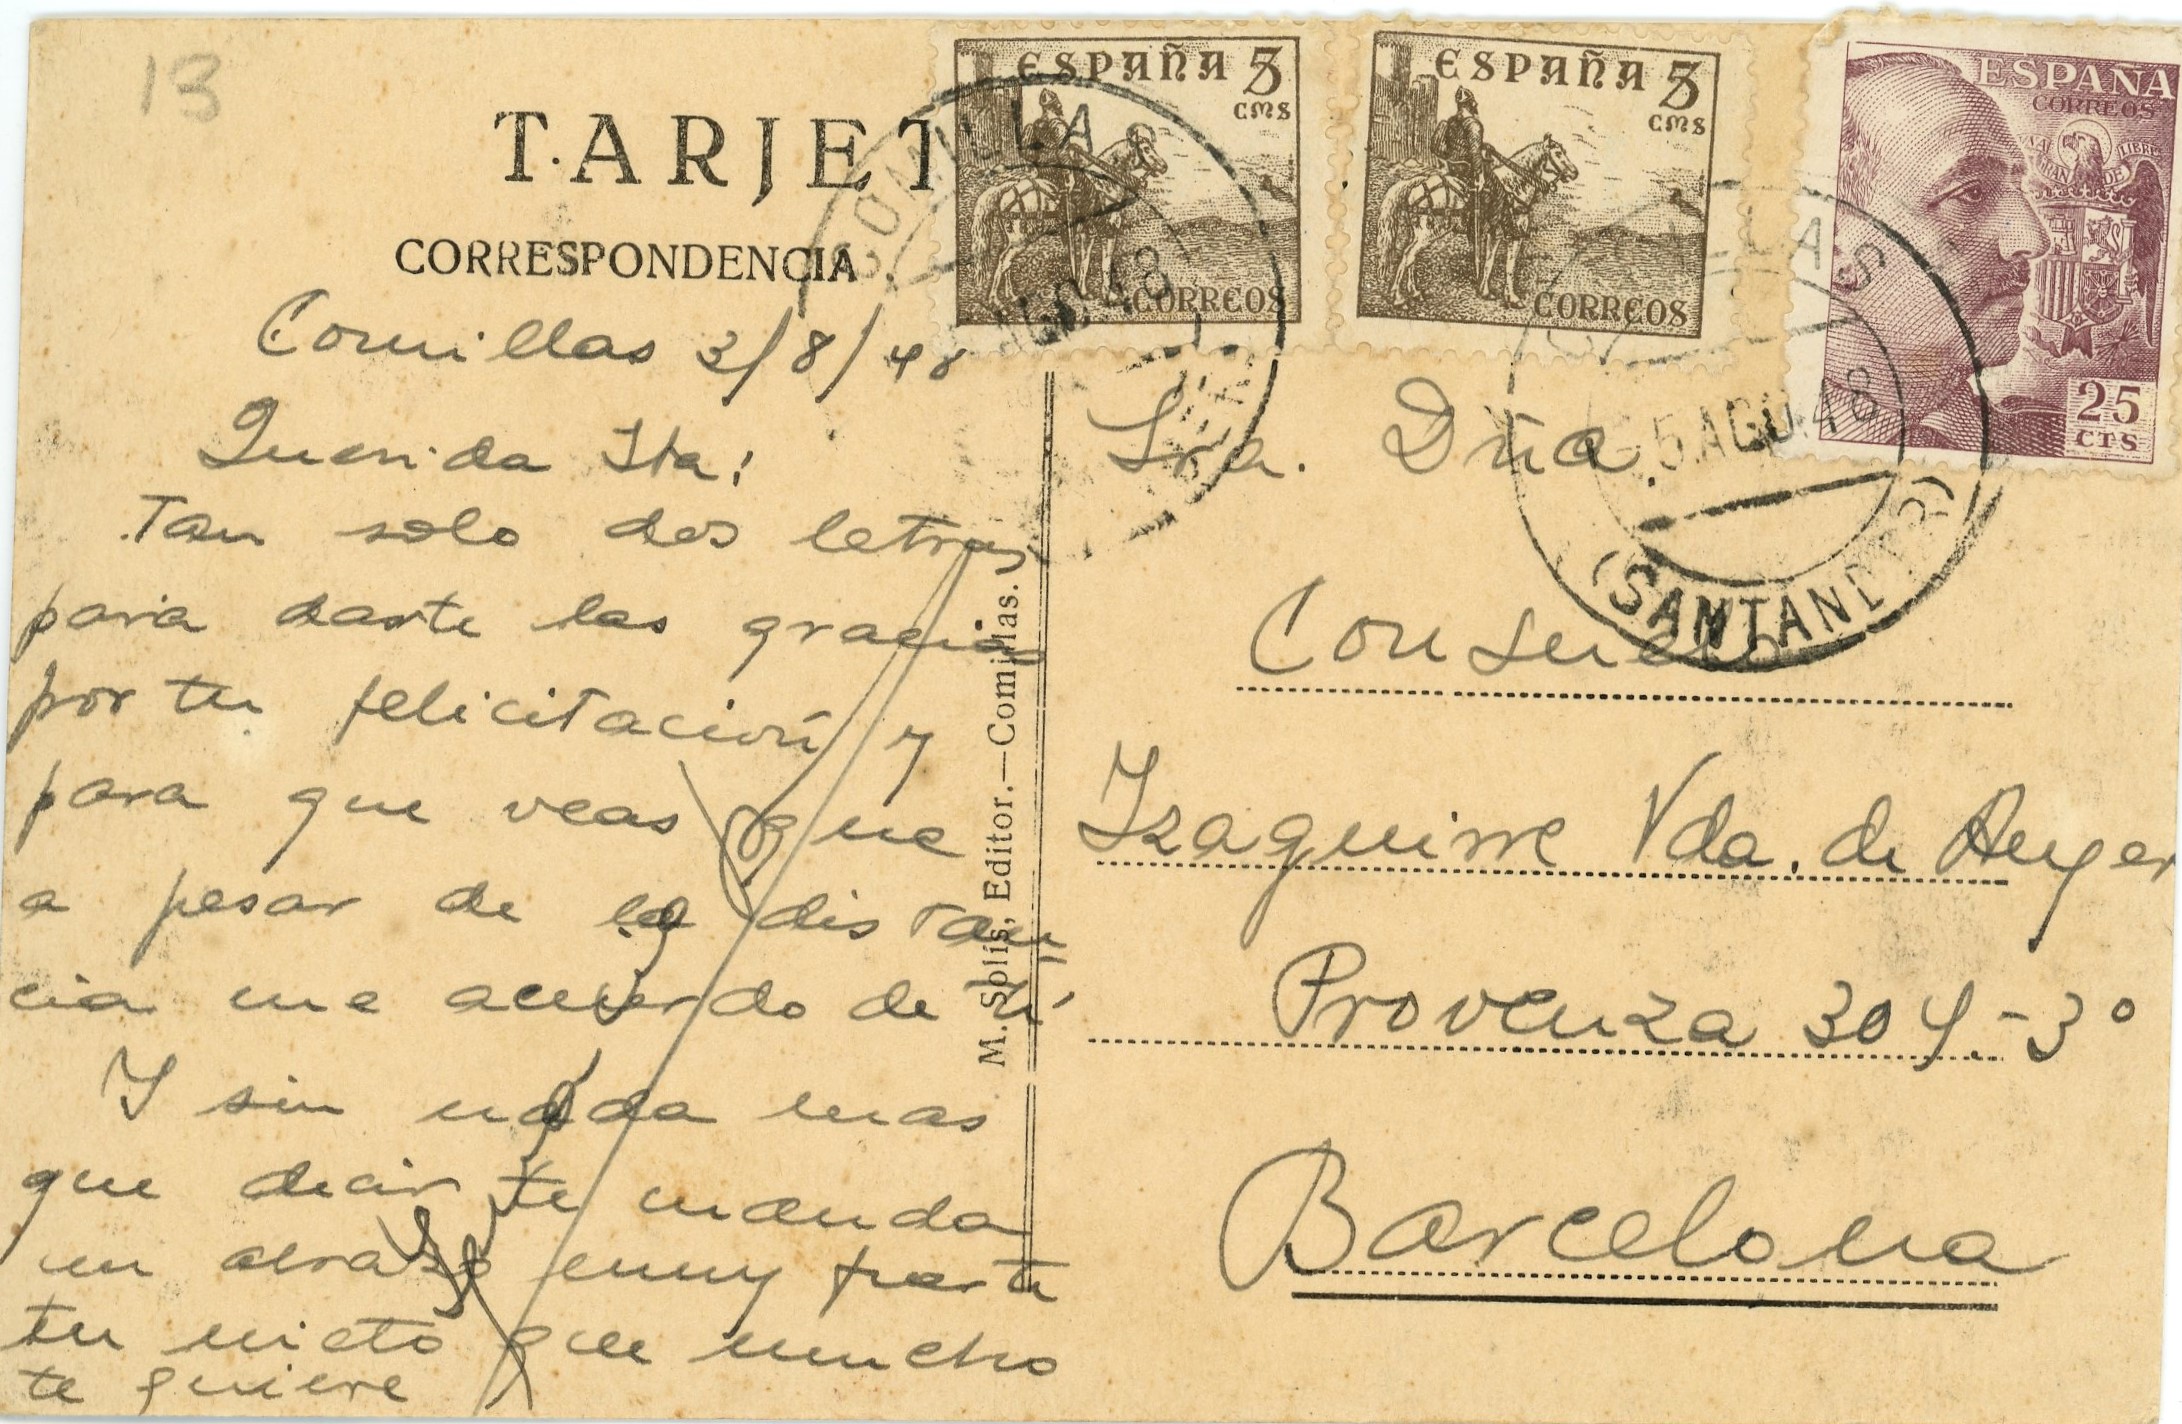 13
TARJET
CORRESPONDENCIA
Comillas 3/8/48
Querida Ita:
Tan solo dos letras
para darte las gracias
por tu felicitación y
para que veas que
a pesar de la distan
cia me acuerdo de ti
Y sin nada mas
que decirte manda
un abrazo muy fuerte
tu nieto que mucho
te quiere
M. Solís, Editor.—Comillas.
ESPAÑA 5
CMS
CORREOS
ESPAÑA 5
CMS
CORREOS
ESPAÑA
CORREOS
25
CTS
COMILLA
AGO 48
LAS
5 AGO 48
(SANTANDER)
Sra. Dña.
Consuelo
Izaguirre Vda. de
Provenza 304-3º
Barcelona